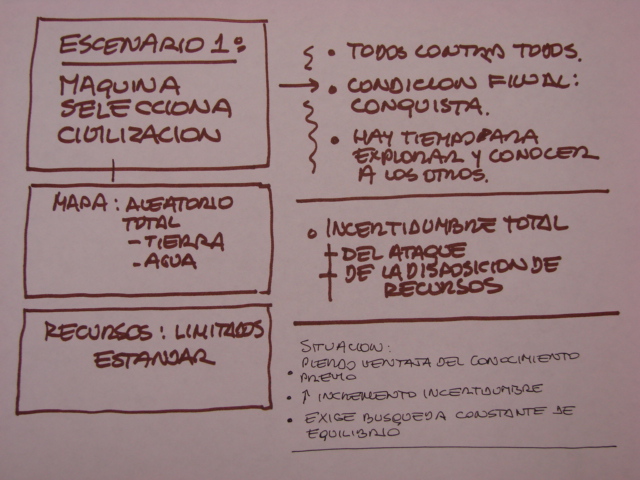 ESCENARIO 1:
MAQUINA
SELECCIONA
CIVILIZACION
MAPA: ALEATORIO
TOTAL
- TIERRA
- AGUA
RECURSOS: LIMITADOS
ESTANDAR
• TODOS CONTRA TODOS.
→ • CONDICION FINAL:
CONQUISTA.
• HAY TIEMPO PARA
EXPLORAR Y CONOCER
A LOS OTROS.
• INCERTIDUMBRE TOTAL
+ DEL ATAQUE
+ DE LA DISPOSICION DE
RECURSOS
SITUACION:
• PIERDO VENTAJA DEL CONOCIMIENTO
PREVIO
• ↑ INCREMENTO INCERTIDUMBRE
• EXIGE BUSQUEDA CONSTANTE DE
EQUILIBRIO